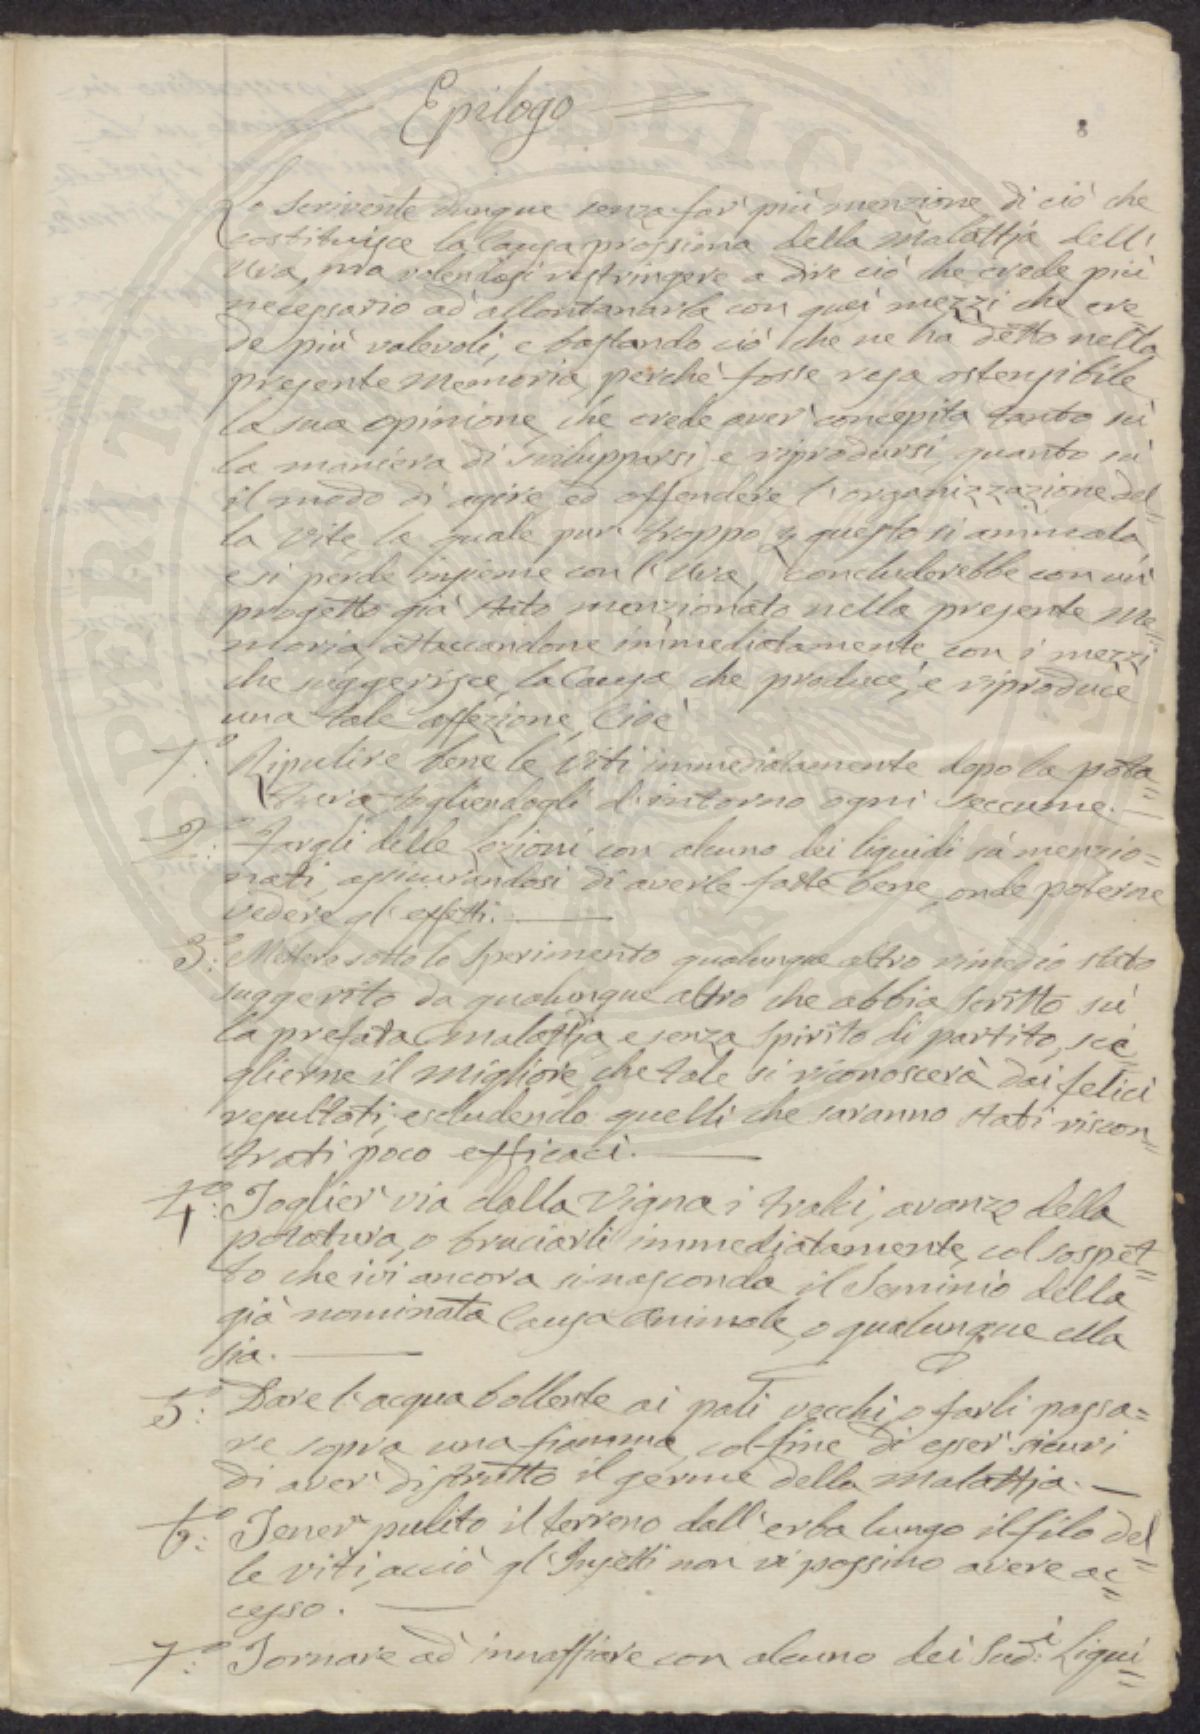 Epilogo
8
Lo scrivente dunque senza far' più menzione di ciò che
costituisce la Causa prossima della Malattia dell'
Uva, ma volendosi restringere a dire ciò che crede più
necessario ad allontanarla con quei mezzi che cre-
de più valevoli, e bastando ciò che ne ha detto nella
presente Memoria, perchè fosse resa ostensibile
la sua opinione, che crede aver' concepita tanto sù
la maniera di svilupparsi, e riprodursi, quanto sù
il modo di agire, ed offendere l'organizzazione del=
la Vite, la quale pur' troppo p questo si ammala,
e si perde insieme con l'Uva, concluderebbe con un'
progetto già stato menzionato nella presente Me=
moria, attaccandone immediatamente con i mezzi
che suggerisce, la Causa che produce, e riproduce
una tale affezione, Cioè
1.º Ripulire bene le Viti immediatamente dopo la pota=
tura togliendogli d'intorno ogni seccume.
2.º Fargli delle Lozioni con alcuno dei liquidi sù menzio=
nati, assicurandosi di averle fatte bene, onde poterne
vedere gl'effetti.
3.º Mettere sotto lo Sperimento qualunque altro rimedio stato
suggerito da qualunque altro che abbia scritto sù
la prefata malattia, e senza spirito di partito, sce=
glierne il migliore, che tale si riconoscerà dai felici
resultati, escludendo quelli che saranno stati riscon=
trati poco efficaci.
4.º Toglier' via dalla Vigna i tralci, avanzo della
potatura, o bruciarli immediatamente, col sospet=
to che ivi ancora si nasconda il Seminio della
già nominata Causa Animale, o qualunque ella
sia.
5.º Dare l'acqua bollente ai pali vecchi, o farli passa=
re sopra una fiamma, col fine di esser' sicuri
di aver' distrutto il germe della Malattia.
6.º Tener' pulito il terreno dall'erba lungo il filo del=
le viti, acciò gl'Insetti non vi possino avere ac=
cesso.
7.º Tornare ad innaffiare con alcuno dei Sud.i Liqui=